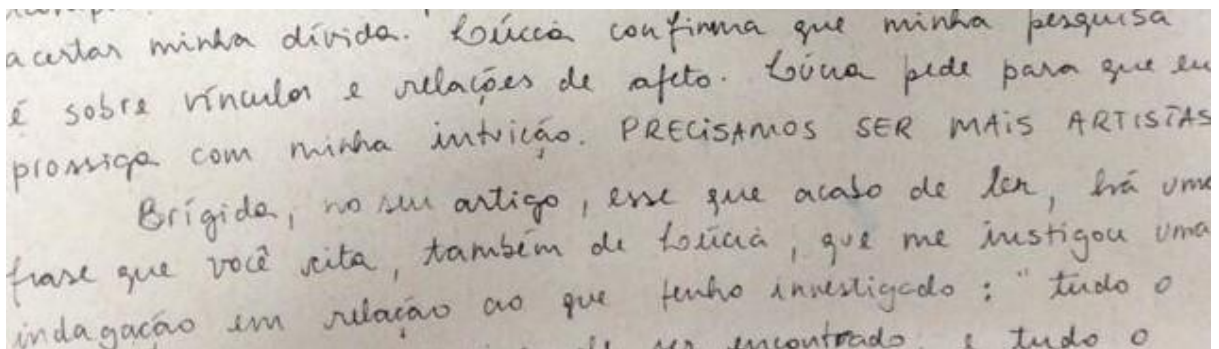 acertar minha dívida. Lúcia confirma que minha pesquisa
é sobre vínculos e relações de afeto. Lúcia pede para que eu
prossiga com minha intuição. PRECISAMOS SER MAIS ARTISTAS
Brígida, no seu artigo, esse que acabo de ler, há uma
frase que você cita, também de Lúcia, que me instigou uma
indagação em relação ao que tenho investigado: "tudo o
de ser encontrado, e tudo o